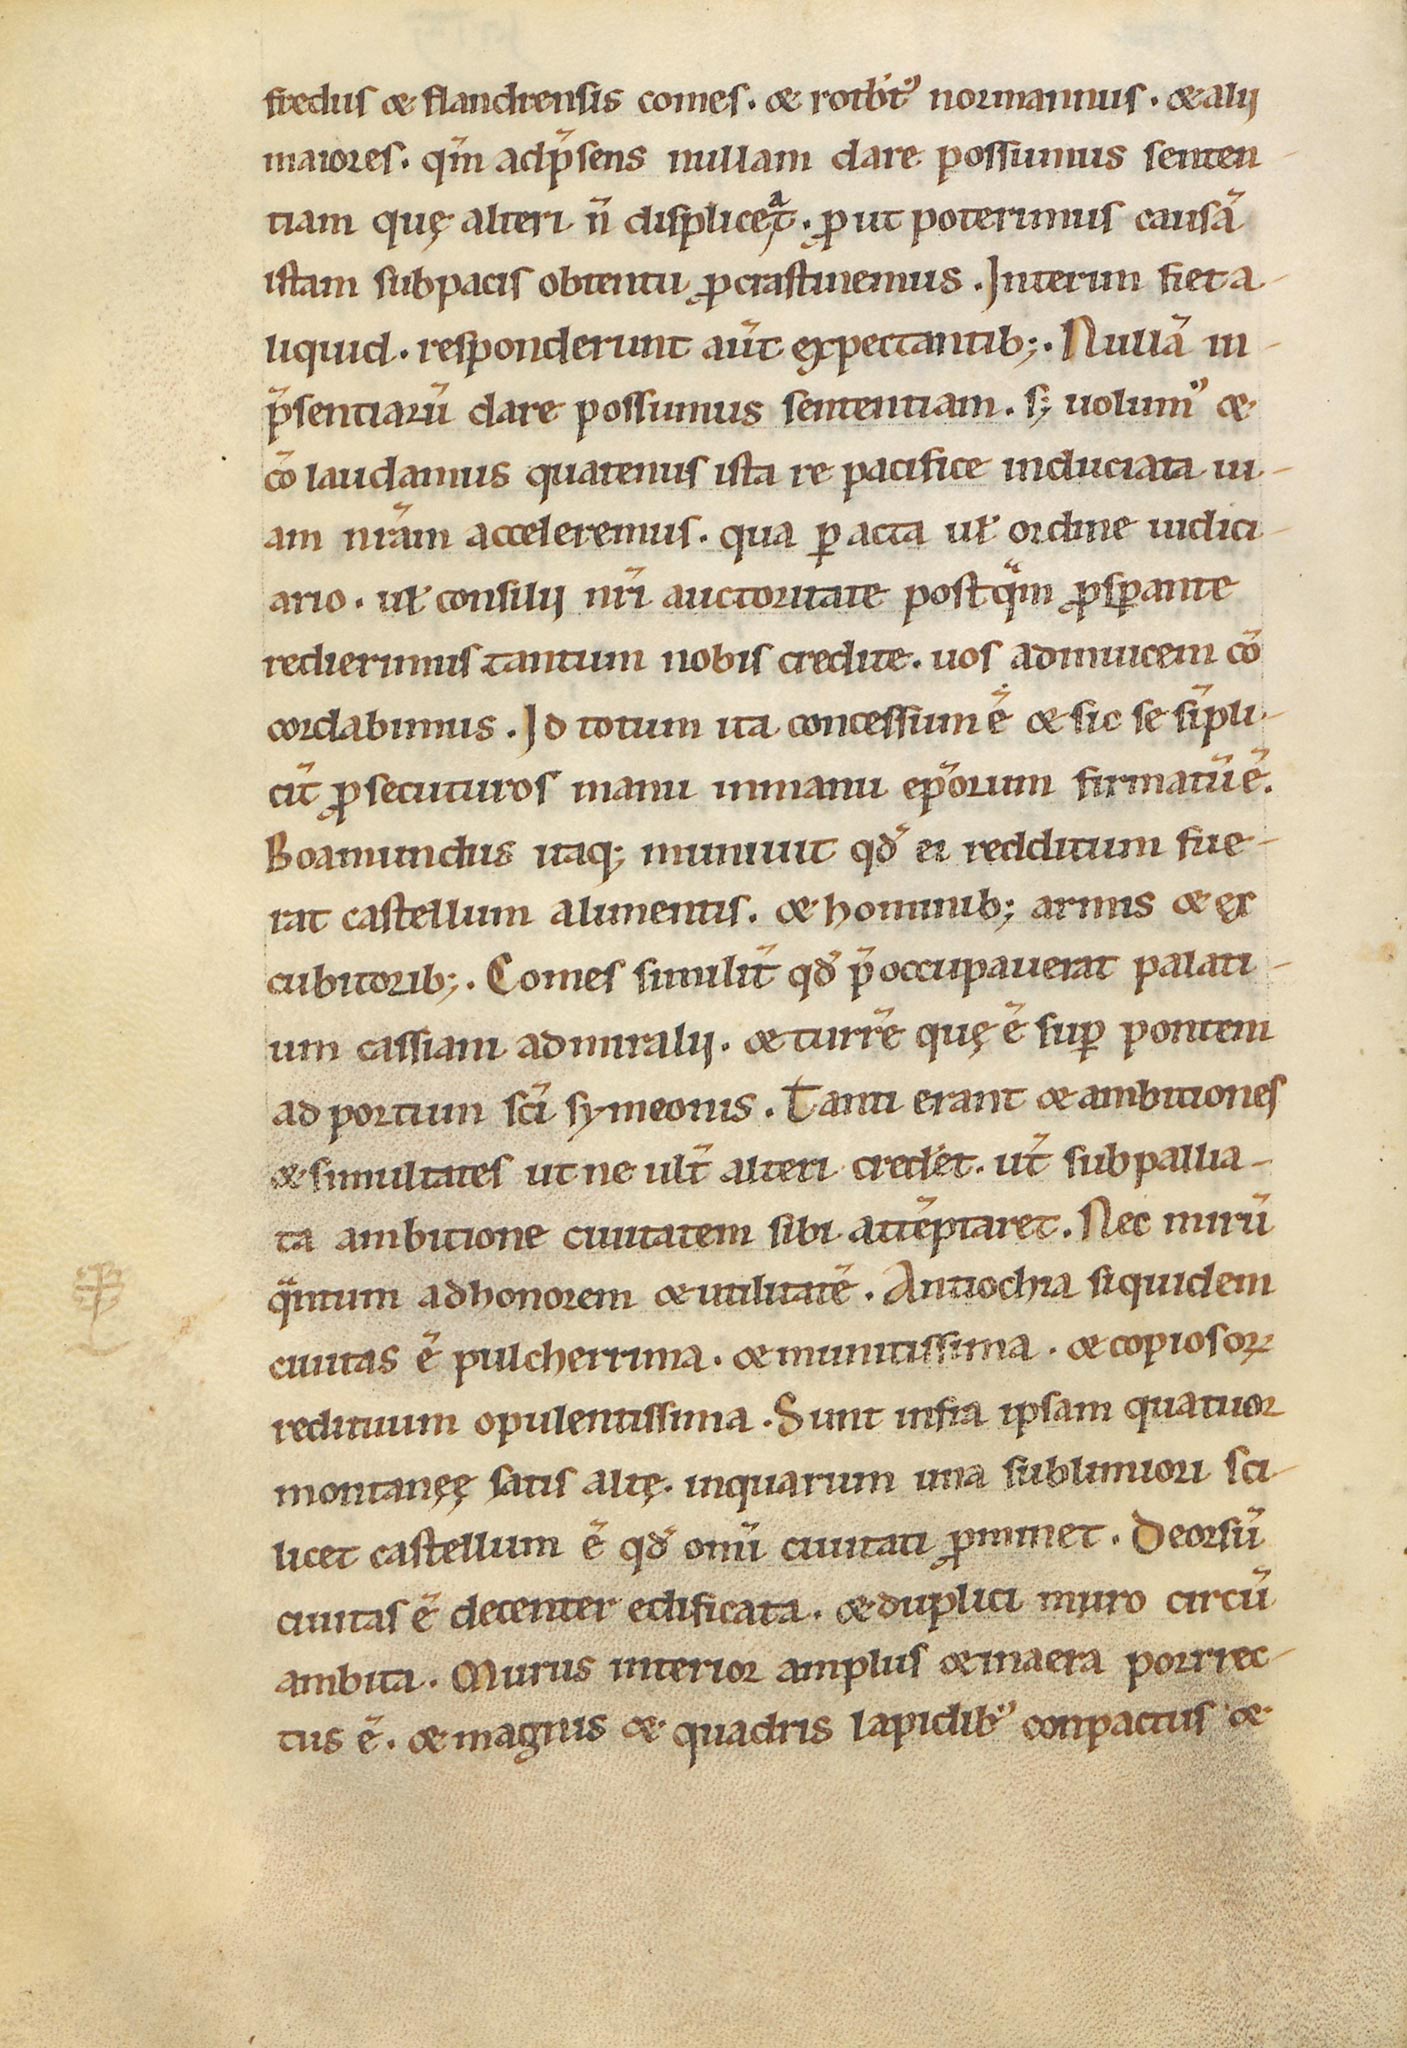 fredus & flandrensis comes. & rotbt᷒ normannus. & alij
maiores. qm̄ adp̄sens nullam dare possumus senten-
tiam quę alteri n̄ displiceat. ꝓut poterimus causā
istam subpacis obtentu ꝓcrastinemus. Interim fiet a-
liquid. responderunt aut̄ expectantib;. Nullā in-
p̄sentiarū dare possumus sententiam. s; uolum᷒ &
cōlaudamus quatenus ista re pacifice induciata ui-
am nr̄am acceleremus. qua ꝑacta ul̵ ordine iudici-
ario. ul̵ consilij nr̄i auctoritate postq̄m ꝓsꝑante
redierimus tantum nobis credite. uos adinuicem cō
cordabimus. Id totum ita concessum ē & sic se sīpli-
cit̄ ꝓsecuturos manu inmanu ep̄orum firmatū ē.
Boamundus itaq; muniuit qd̄ ei redditum fue-
rat castellum alimentis. & hominib; armis & ex
cubitorib;. Comes similit̄ qd̄ p̄occupauerat palati-
um cassiani admiralij. & turrē quę ē suꝑ pontem
ad portum sc̄i symeonis. Tanti erant & ambitiones
& simultates ut ne ult̄ alteri cred̄et. ut̄ subpallia-
ta ambitione ciuitatem sibi attēptaret. Nec mirū
q̄ntum adhonorem & utilitatē. Antiochia siquidem
ciuitas ē pulcherrima. & munitissima. & copiosoꝝ
redituum opulentissima. Sunt infra ipsam quatuor
montanęę satis altę. inquarum una sublimiori sci-
licet castellum ē qd̄ om̄i ciuitati ꝓminet. Deorsū
ciuitas ē decenter edificata. & duplici muro circū
ambita. Murus interior amplus & inaera porrec-
tus ē. & magnis & quadris lapidib᷒ conpactus &